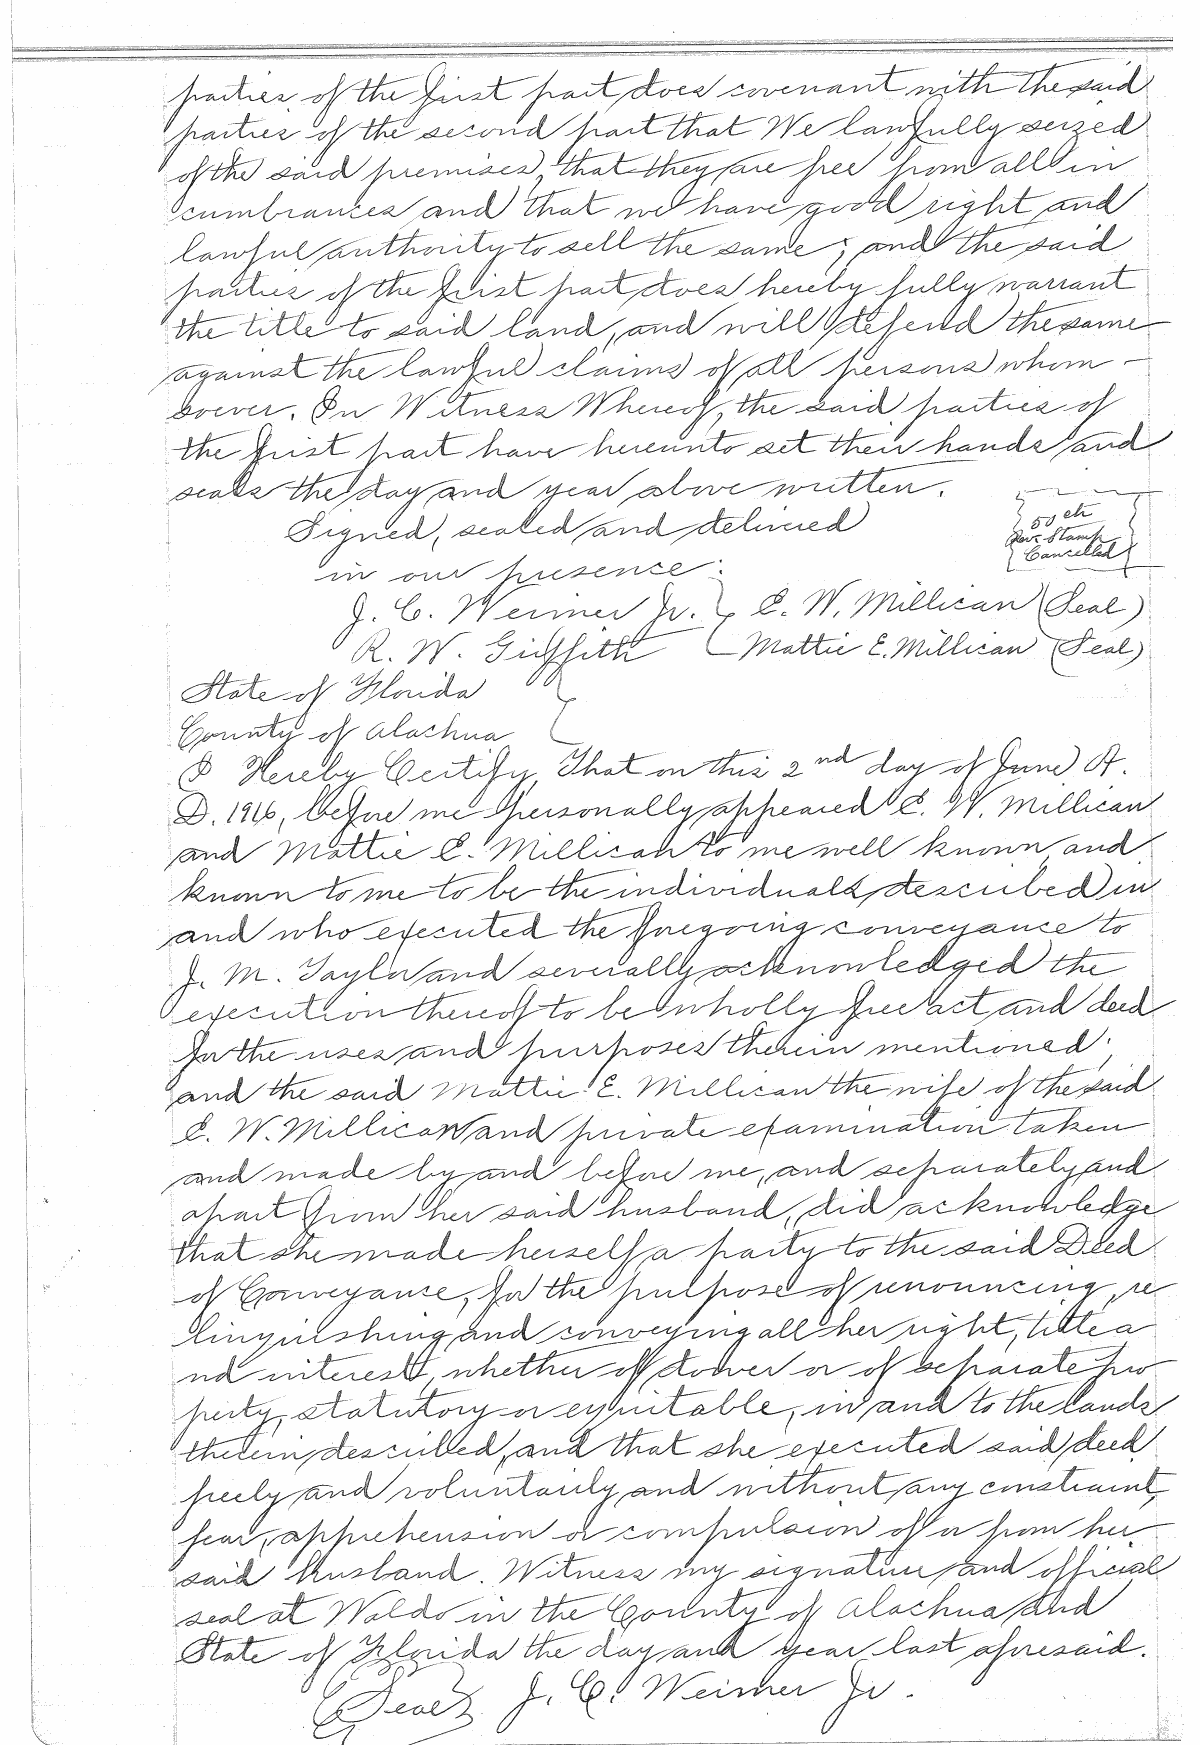 parties of the first part does covenant with the said
parties of the second part that We lawfully seized
of the said premises, that they are free from all in
cumbrances and that we have good right and
lawful authority to sell the same; and the said
parties of the first part does hereby fully warrant
the title to said land, and will defend the same
against the lawful claims of all persons whom-
soever. In Witness Whereof, the said parties of
the first part have hereunto set their hands and
seals the day and year above written.
Signed, sealed and delivered
in our presence:
50 cts
Rev. Stamp
Cancelled
J. C. Weimer Jr. E. W. Millican (Seal)
R. W. Griffith Mattie E. Millican (Seal)
State of Florida
County of Alachua
I Hereby Certify, That on this 2nd day of June A.
D. 1916, before me personally appeared E. W. Millican
and Mattie E. Millican to me well known and
known to me to be the individuals described in
and who executed the foregoing conveyance to
J. M. Taylor and severally acknowledged the
execution thereof to be wholly free act and deed
for the uses and purposes therein mentioned;
and the said Mattie E. Millican the wife of the said
E. W. Millican and private examination taken
and made by and before me, and separately and
apart from her said husband, did acknowledge
that she made herself a party to the said Deed
of Conveyance, for the purpose of renouncing, re
linquishing and conveying all her right, title a
nd interest, whether of dower or of separate pro
perty, statutory or equitable, in and to the lands
therein described, and that she executed said deed
freely and voluntarily and without any constraint,
fear, apprehension or compulsion of or from her
said husband. Witness my signature and official
seal at Waldo in the County of Alachua and
State of Florida the day and year last aforesaid.
(Seal) J. C. Weimer Jr.